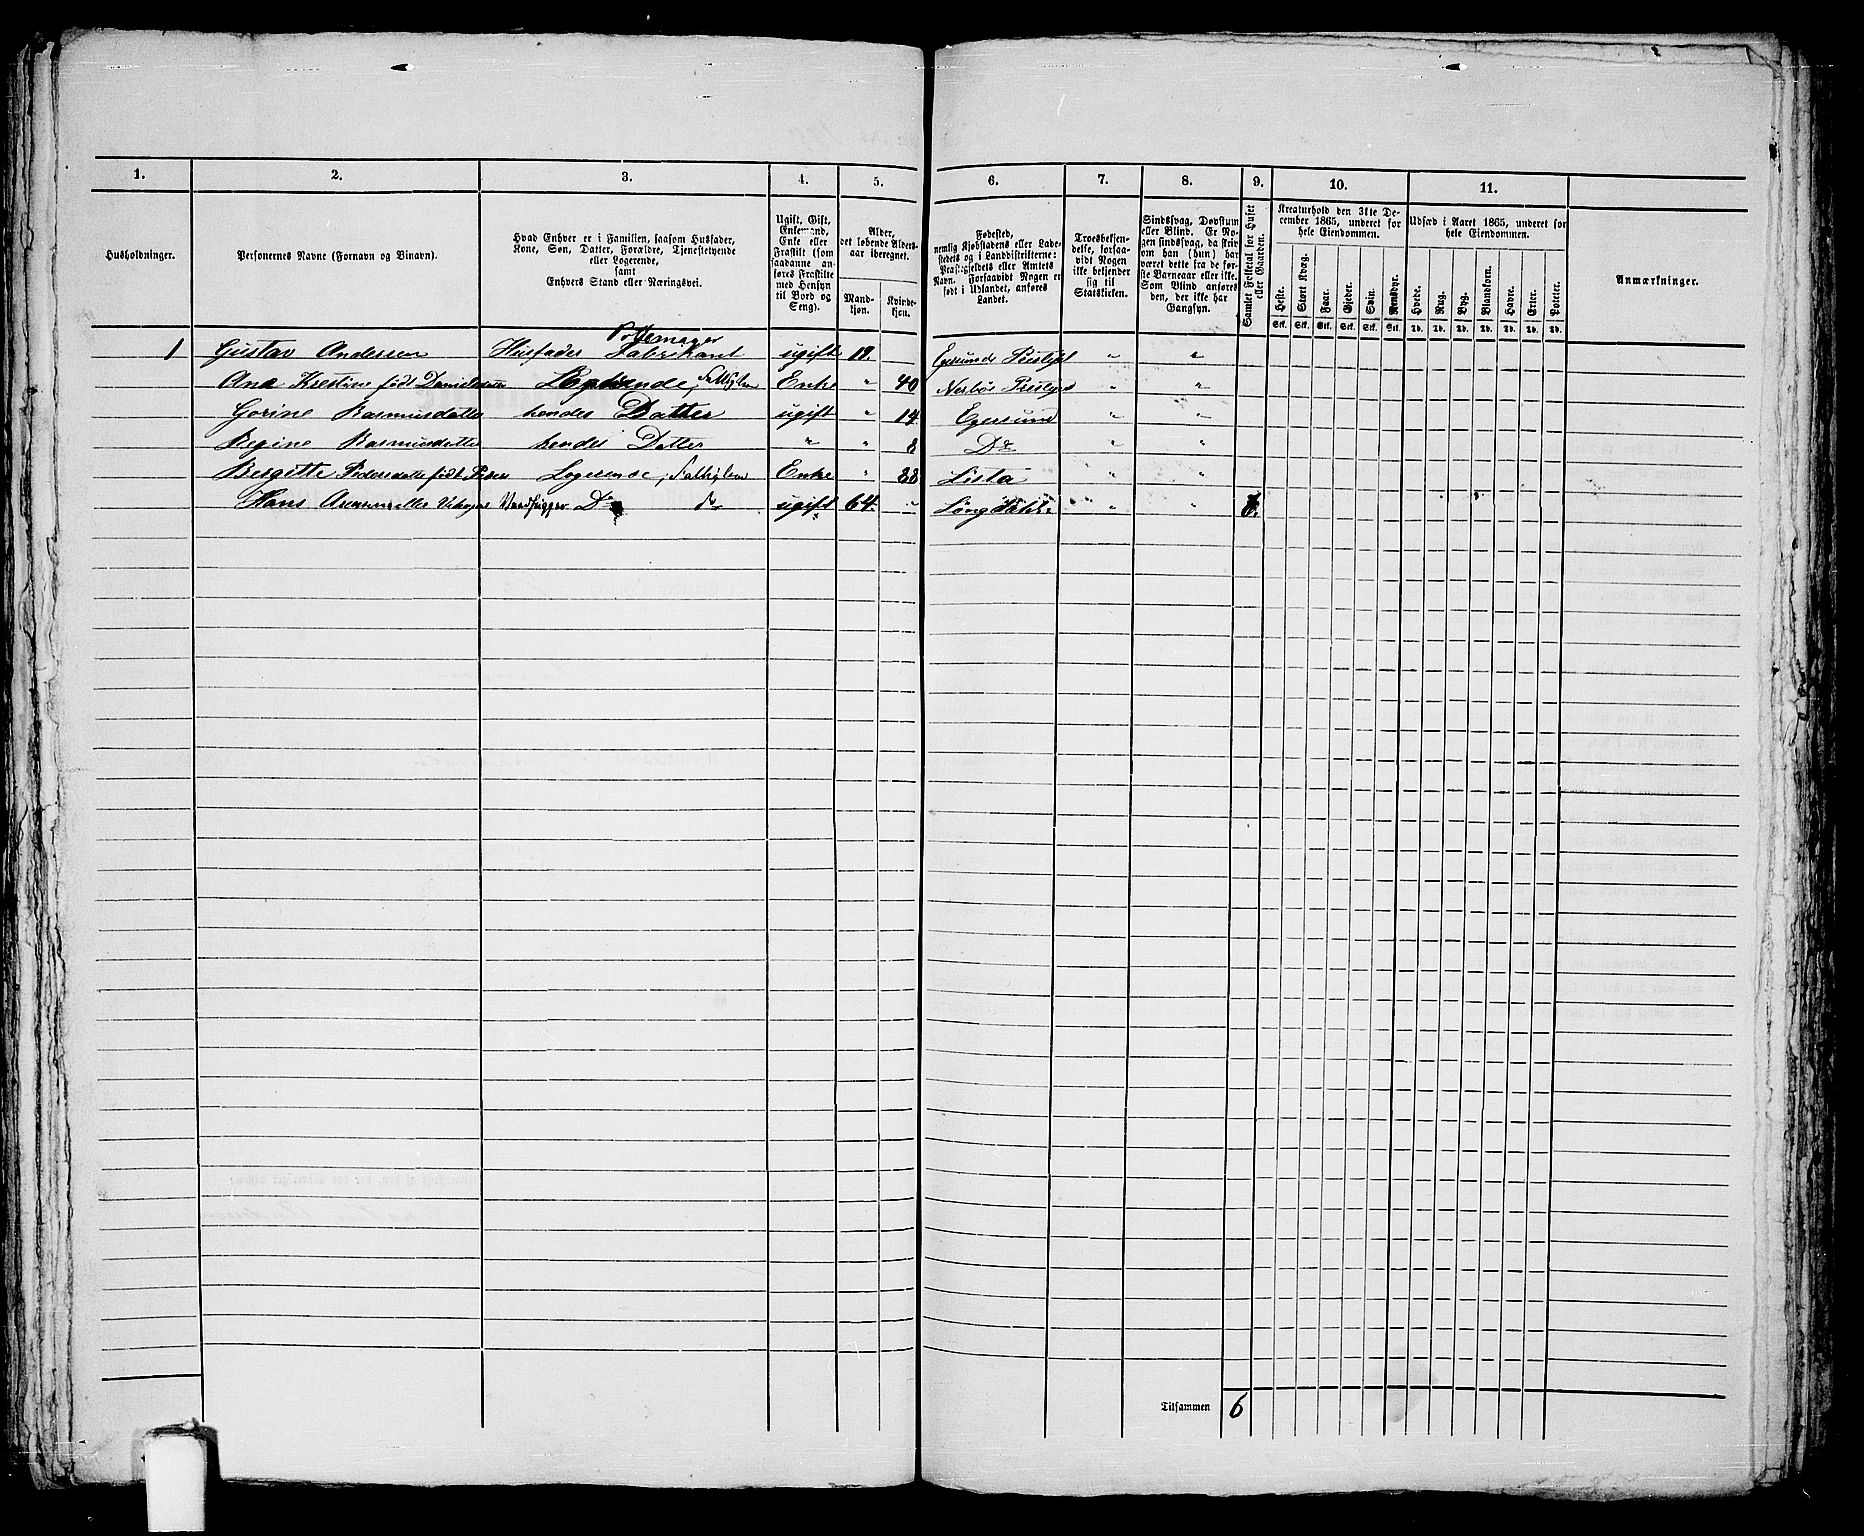 1. 2. 3. 4. 5. 6. 7. 8. 9. 10. 11.
Husholdninger.
Personernes Navne (Fornavn og Binavn).
Hvad Enhver er i Familien, saasom Husfader,
Kone, Søn, Datter, Forældre, Tjenestetyende
eller Logerende,
samt
Enhvers Stand eller Næringsvei.
Ugift, Gift,
Enkemand,
Enke eller
Fraskilt (som
saadanne an-
føres Fraskilte
med Hensyn
til Bord og
Seng).
Alder,
det løbende Alders-
aar iberegnet.
Mand-
kjøn.
Kvinde-
kjøn.
Fødested,
nemlig Kjøbstadens eller Lade-
stedets og i Landdistrikterne:
Præstegjeldets eller Amtets
Navn. Forsaavidt Nogen er
født i Udlandet, anføres
Landet.
Troesbekjen-
delse, forsaa-
vidt Nogen
ikke bekjender
sig til
Statskirken.
Sindssvag, Døvstum
eller Blind. Er No-
gen sindssvag, da skriv
om han (hun) har
været dette fra de før-
ste Barneaar eller ikke.
Som Blind anføres
den, der ikke har
Gangsyn.
Samlet Folketal for Huset
eller Gaarden.
Kreaturhold den 31te De-
cember 1865, underet for
hele Eiendommen.
Heste. Stort Kvæg. Faar. Gjeder. Svin. Rensdyr.
Stk. Stk. Stk. Stk. Stk. Stk.
Udsæd i Aaret 1865, underet for
hele Eiendommen.
Hvede. Rug. Byg. Blandkorn. Havre. Erter. Poteter.
Td. Td. Td. Td. Td. Td. Td.
Anmærkninger.
Pottemager
1 Gustav Andersen Husfader Fabrikant ugift Egersunds "
Ana Kristine født Logerende, Enke " 40 " "
Gorine Rasmusdatter hendes Datter ugift " 14 Egersund " "
Regine Rasmusdatter hendes Datter " " 8 Do " "
Bergitte født Logerende, Enke " Lista " "
Hans eller Do do ugift 64 " " 6.
Tilsammen 6